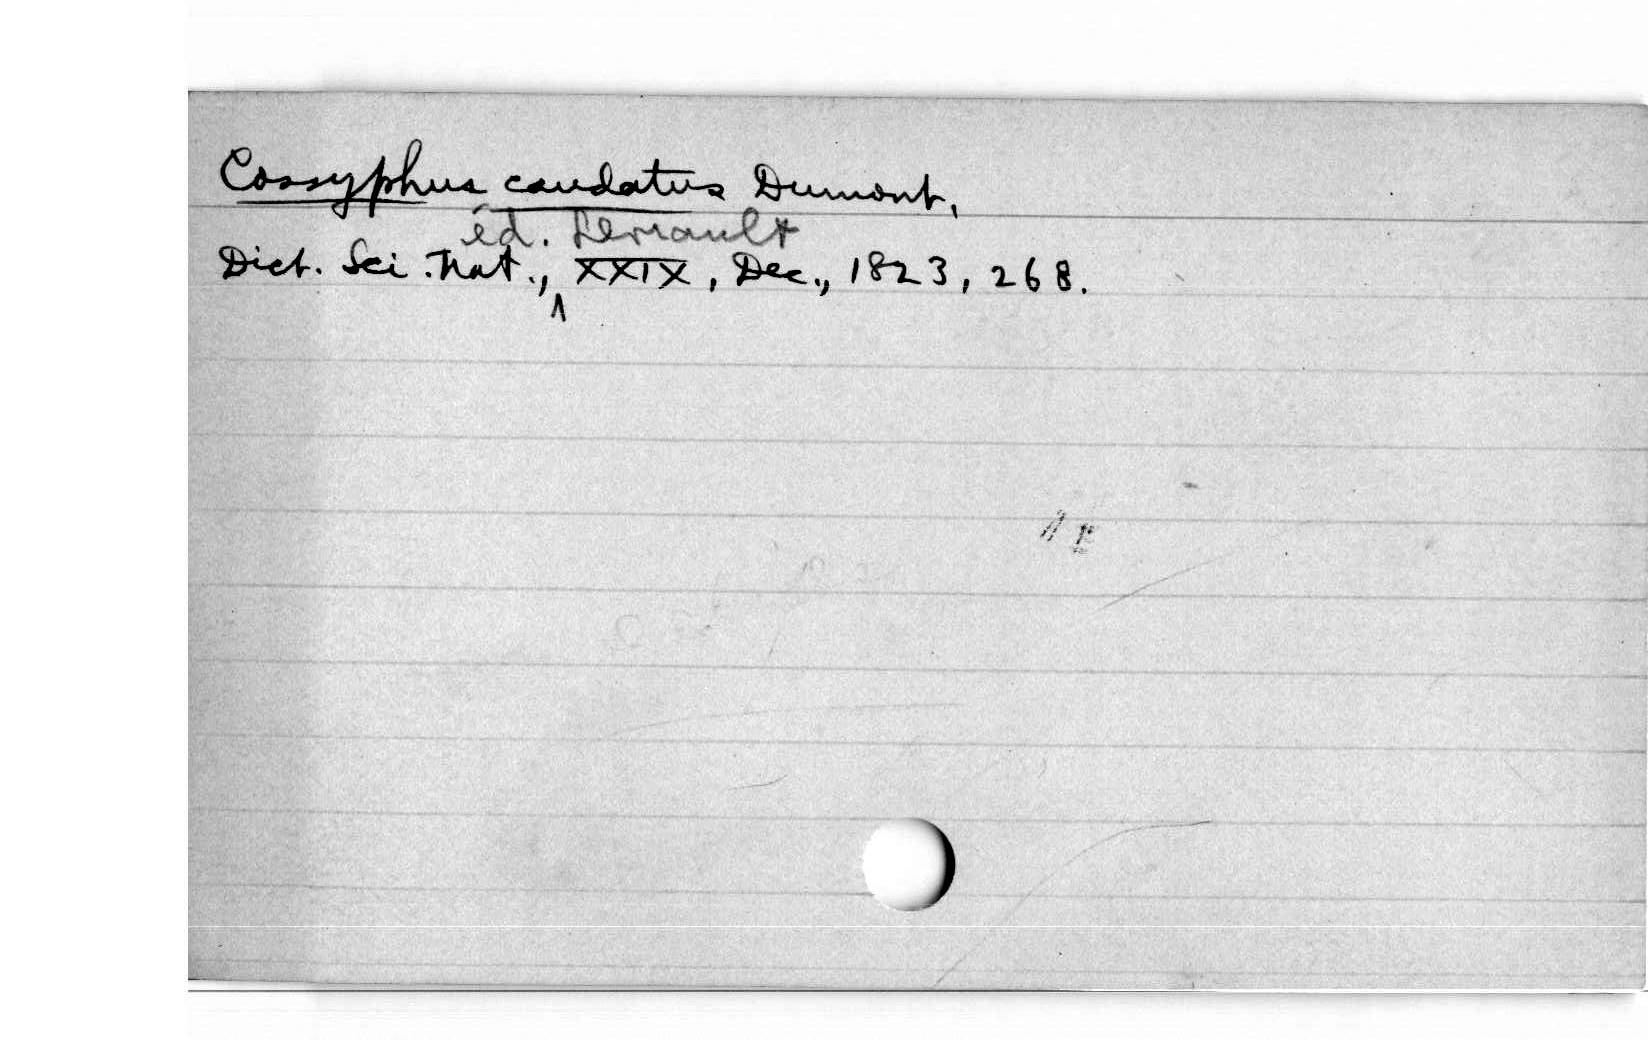 Cossyphus caudatus Dumont,
éd. Levrault
Dict. Sci. Nat., ^ XXIX, Dec., 1823, 268.